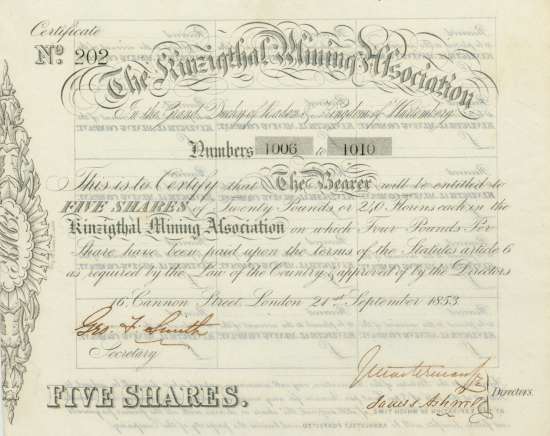 Certificate
No. 202
The Kinzigthal Mining Association
In the Grand Duchy of Baden & Kingdom of Wurtemberg
Numbers 1006 to 1010
This is to Certify that The Bearer will be entitled to
FIVE SHARES of Twenty Pounds or 240 Florins each in the
Kinzigthal Mining Association on which Four Pounds Per
Share have been paid upon the terms of the Statutes article 6
as required by the Law of the Country & approved of by the Directors
16, Cannon Street, London 21st September 1853
Geo. F. Smith
Secretary
FIVE SHARES.
Directors.